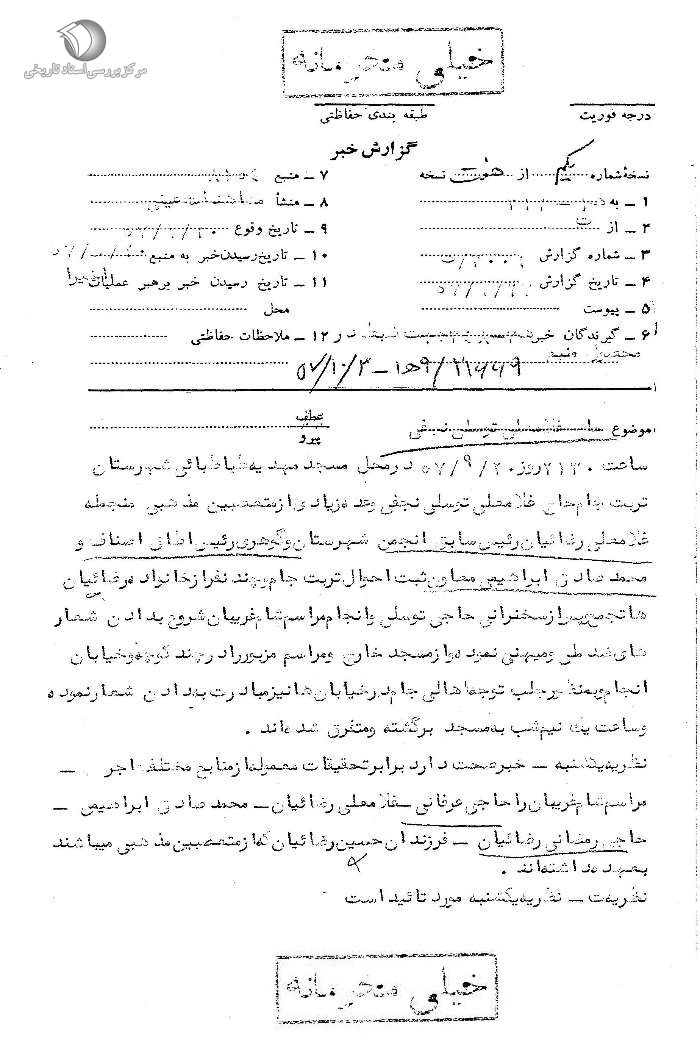 مرکز بررسی اسناد تاریخی
خیلی محرمانه
درجه فوریت
طبقه بندی حفاظتی
گزارش خبر
نسخهٔ شماره یکم از هفت نسخه
۱ – به
۲ – از ت
۳ – شماره گزارش
۴ – تاریخ گزارش
۵ – پیوست
۶ – گیرندگان خبر
۷ – منبع
۸ – منشأ
۹ – تاریخ وقوع
۱۰ – تاریخ رسیدن خبر به منبع
۱۱ – تاریخ رسیدن خبر برهبر عملیات
محل
۱۲ – ملاحظات حفاظتی
۵۷/۱۰/۳ – ۹ھ۱/
موضوع غلامعلی توسلی نجفی
عطف
پیرو
ساعت ۲۱۳۰ روز ۵۷/۹/۲۰ در محل مسجد مهدیه طباطبائی شهرستان
تربت جام حاج غلامعلی توسلی نجفی وعده زیادی از متعصبین مذهبی منجمله
غلامعلی رضائیان رئیس سابق انجمن شهرستان وگوهری رئیس اطاق اصناف و
محمد صادق ابراهیمی معاون ثبت احوال تربت جام وچند نفر از خانواده رضائیان
ها تجمع وپس از سخنرانی حاجی توسلی وانجام مراسم شام غریبان شروع بدادن شعار
های ضد ملی ومیهنی نموده واز مسجد خارج ومراسم مزبور را در چند کوچه وخیابان
انجام وبه منظور جلب توجه اهالی جام در خیابان ها نیز مبادرت بدادن شعار نموده
وساعت یک نیم شب به مسجد برگشته ومتفرق شده اند .
نظریه یکشنبه – خبر صحت دارد برابر تحقیقات معموله از منابع مختلف اجر –
مراسم شام غریبان را حاجی عرفانی – غلامعلی رضائیان – محمد صادق ابراهیمی –
حاجی رمضانی رضائیان – فرزندان حسین رضائیان که از متعصبین مذهبی میباشند
بعهده داشته اند .
نظریه ت – نظریه یکشنبه مورد تائید است
خیلی محرمانه